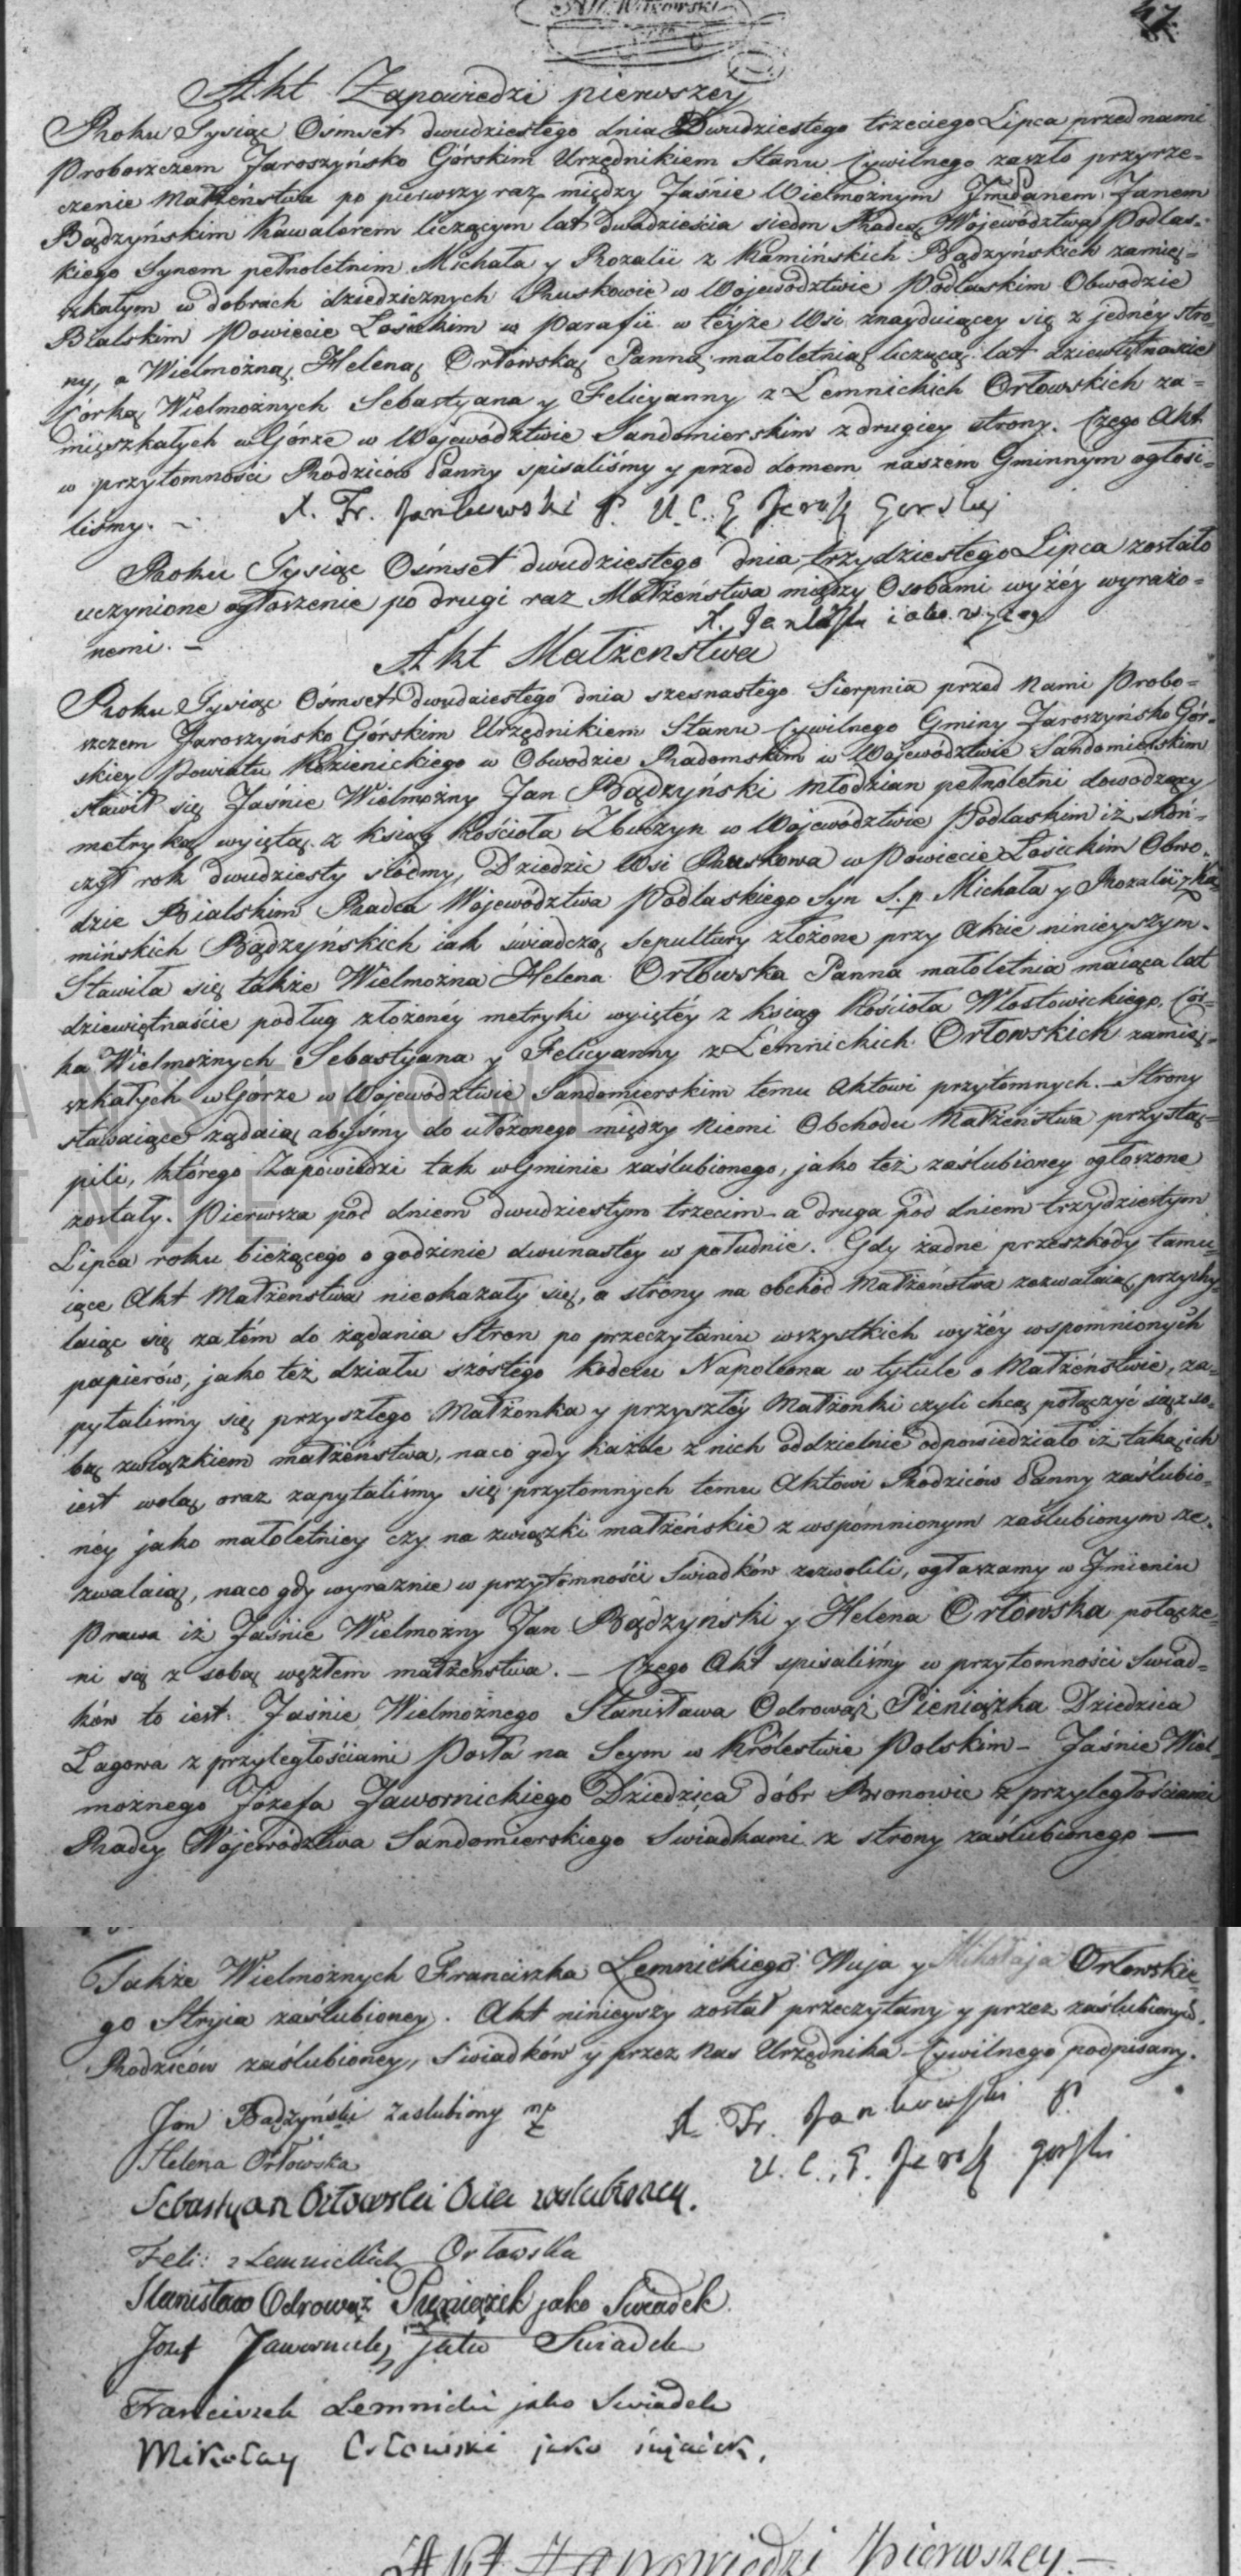 47
Akt Zapowiedzi pierwszey
Roku Tysiąc Ośmset dwudziestego dnia Dwudziestego trzeciego Lipca przed nami
Proboszczem Jaroszyńsko Górskim Urzędnikiem Stanu Cywilnego zaszło przyrze-
czenie Małżeństwa po pierwszy raz między Jaśnie Wielmożnym Janem
Bądzyńskim Kawalerem liczącym lat dwadzieścia siedm Radcą Województwa Podlas-
kiego Synem pełnoletnim Michała y Rozalii z Kamińskich Bądzyńskich zamię-
szkałym w dobrach dziedzicznych Ruskowie w Województwie Podlaskim Obwodzie
Bialskim Powiecie Łosickim w Parafii w teyże Wsi znayduiącey się z jedney stro-
ny, a Wielmożną Heleną Orłowską Panną małoletnią liczącą lat dziewiętnaście
Córką Wielmożnych Sebastyana y Felicyanny z Lemnickich Orłowskich za-
mięszkałych w Górze w Województwie Sandomierskim z drugiey strony. Czego Akt
w przytomności Rodziców Panny spisaliśmy y przed domem naszem Gminnym ogłosi-
liśmy. – X. Fr. Jankowski P. U. C. G. Jarosz Gorskiej
Roku Tysiąc Ośmset dwudziestego dnia trzydziestego Lipca zostało
uczynione ogłoszenie po drugi raz Małżeństwa między Osobami wyżéy wyrażo-
nemi. –
Akt Małżenstwa
Roku Tysiąc Ośmset dwudziestego dnia szesnastego Sierpnia przed Nami Probo-
szczem Jaroszyńsko Górskim Urzędnikiem Stanu Cywilnego Gminy Jaroszyńsko Gór-
skiey Powiatu Kozienickiego w Obwodzie Radomskim w Województwie Sandomierskim
stawił się Jaśnie Wielmożny Jan Bądzyński Młodzian pełnoletni dowodzący
metryką wyiętą z ksiąg Kościoła Zbuczyn w Województwie Podlaskim iż skoń-
czył rok dwudziesty siódmy, Dziedzic Wsi Ruskowa w Powiecie Łosickim Obwo-
dzie Bialskim Radca Województwa Podlaskiego Syn S. p. Michała y Rozalii z Ka-
mińskich Bądzyńskich iak świadczą sepultury złożone przy Akcie ninieyszym.
Stawiła się także Wielmożna Helena Orłowska Panna małoletnia maiąca lat
dziewiętnaście podług złożonéy metryki wyiętéy z ksiąg Kościoła Włostowickiego, Cór-
ka Wielmożnych Sebastyana y Felicyanny z Lemnickich Orłowskich zamię-
szkałych w Górze w Województwie Sandomierskim temu Aktowi przytomnych. – Strony
stawaiące żądaią abyśmy do ułożonego między niemi Obchodu Małżeństwa przystą-
pili, którego Zapowiedzi tak w Gminie zaślubionego, jako też zaślubioney ogłoszone
zostały. Pierwsza pod dniem dwudziestym trzecim a druga pod dniem trzydziestym
Lipca roku bieżącego o godzinie dwunastéy w południe. Gdy żadne przeszkody tamu-
iące Akt Małżenstwa nieokazały się, a strony na obchód Małżeństwa zezwalaią, przychy-
laiąc się zatém do żądania Stron po przeczytaniu wszystkich wyżéy wspomnionych
papierów, jako też działu szóstego kodexu Napoleona w tytule o Małżeństwie, za-
pytaliśmy się przyszłego Małżonka y przyszłéy Małżonki czyli chcą połączyć się z so-
bą związkiem małżeństwa, naco gdy każde z nich oddzielnie odpowiedziało iż taka ich
iest wola, oraz zapytaliśmy się przytomnych temu Aktowi Rodziców Panny zaślubio-
néy jako małoletniey czy na związki małżeńskie z wspómnionym zaślubionym ze-
zwalaią, naco gdy wyraznie w przytomności Świadków zezwolili, ogłaszamy w Jmieniu
Prawa iż Jaśnie Wielmożny Jan Bądzyński y Helena Orłowska połącze-
ni są z sobą węzłem małżeństwa. – Czego Akt spisaliśmy w przytomności Świad-
ków to iest: Jaśnie Wielmożnego Stanisława Odrowąż Pieniążka Dziedzica
Łagowa z przyległościami Posła na Seym w Królestwie Polskim – Jaśnie Wiel-
możnego Józefa Jawornickiego Dziedzica dóbr Bronowic z przyległościami
Radcy Województwa Sandomierskiego Świadkami z strony zaślubionego —
Także Wielmożnych Franciszka Lemnickiego Wuja y Mikołaja Orłowskie-
go Stryia zaślubioney. Akt ninieyszy został przeczytany y przez zaślubionych,
Rodziców zaślubioney, Świadków y przez Nas Urzędnika Cywilnego podpisany.
Jan Bądzyński zaslubiony mp
X. Fr. Jankowski P.
Helena Orłowska
U. C. G. Jarosz Gorski
Sebastyan Orłowski Ociec zaslubioney.
Feli: z Lemnickich Orłowska
Stanisław Odrowąż Pieniążek jako Swiadek
Jozef Jawornicki jako Swiadek
Franciszek Lemnicki jako Swiadek
Mikołay Orłowski jako świadek.
Akt Zapowiedzi Pierwszey. –